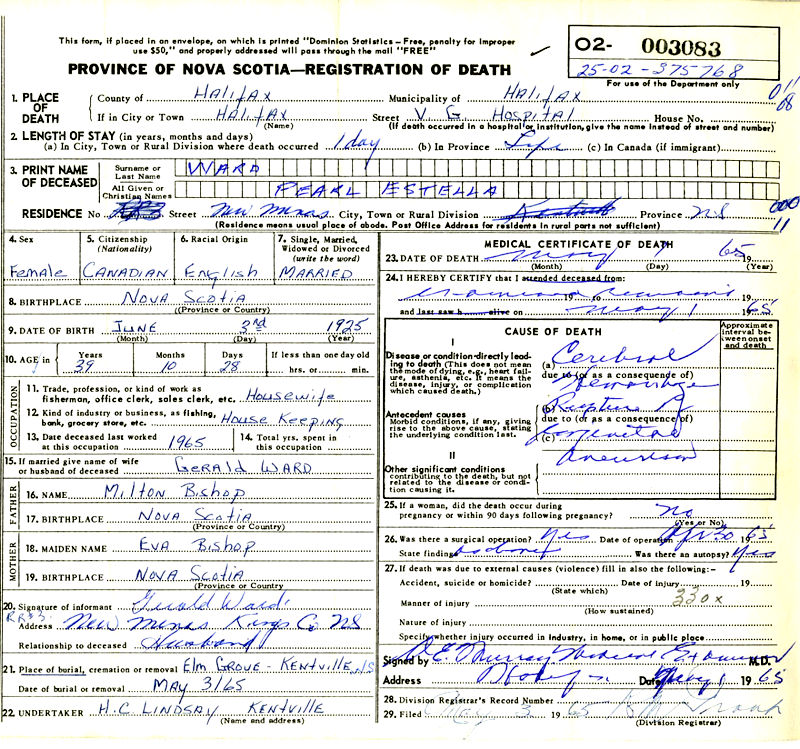 This form, if placed in an envelope, on which is printed "Dominion Statistics – Free, penalty for improper
use $50," and properly addressed will pass through the mail "FREE"
PROVINCE OF NOVA SCOTIA—REGISTRATION OF DEATH
02- 003083
25-02-375768
For use of the Department only
011
08
1. PLACE OF DEATH
County of HALIFAX Municipality of HALIFAX
If in City or Town HALIFAX Street V G HOSPITAL House No.
(Name) (If death occurred in a hospital or institution, give the name instead of street and number)
2. LENGTH OF STAY (in years, months and days)
(a) In City, Town or Rural Division where death occurred 1 day (b) In Province Life (c) In Canada (if immigrant)
3. PRINT NAME OF DECEASED
Surname or Last Name WARD
All Given or Christian Names PEARL ESTELLA
RESIDENCE No. Street New Minas City, Town or Rural Division Kentville Province NS
000
11
(Residence means usual place of abode. Post Office Address for residents in rural parts not sufficient)
4. Sex Female
5. Citizenship (Nationality) CANADIAN
6. Racial Origin English
7. Single, Married, Widowed or Divorced (write the word) MARRIED
8. BIRTHPLACE NOVA SCOTIA
(Province or Country)
9. DATE OF BIRTH JUNE 3rd 1925
(Month) (Day) (Year)
10. AGE in Years 39 Months 10 Days 28 If less than one day old hrs. or min.
OCCUPATION
11. Trade, profession, or kind of work as fisherman, office clerk, sales clerk, etc. Housewife
12. Kind of industry or business, as fishing, bank, grocery store, etc. House Keeping
13. Date deceased last worked at this occupation 1965
14. Total yrs. spent in this occupation
15. If married give name of wife or husband of deceased GERALD WARD
FATHER
16. NAME Milton Bishop
17. BIRTHPLACE NOVA SCOTIA
(Province or Country)
MOTHER
18. MAIDEN NAME EVA Bishop
19. BIRTHPLACE NOVA SCOTIA
(Province or Country)
20. Signature of informant Gerald Ward
RR#3 Address New Minas Kings Co NS
Relationship to deceased Husband
21. Place of burial, cremation or removal Elm Grove - Kentville NS
Date of burial or removal MAY 3/65
22. UNDERTAKER H.C LINDSAY KENTVILLE
(Name and address)
MEDICAL CERTIFICATE OF DEATH
23. DATE OF DEATH May 1 65 19
(Month) (Day) (Year)
24. I HEREBY CERTIFY that I attended deceased from:
examined 19 to remains 19
and last saw h alive on May 1 1965
CAUSE OF DEATH
Approximate interval between onset and death
I
Disease or condition directly leading to death (This does not mean the mode of dying, e.g., heart failure, asthenia, etc. It means the disease, injury, or complication which caused death.)
(a) Cerebral
due to (or as a consequence of)
Hemorrhage
Antecedent causes
Morbid conditions, if any, giving rise to the above cause, stating the underlying condition last.
(b) Rupture of
due to (or as a consequence of)
(c) Congenital
Aneurism
II
Other significant conditions contributing to the death, but not related to the disease or condition causing it.
25. If a woman, did the death occur during pregnancy or within 90 days following pregnancy? No
(Yes or No)
26. Was there a surgical operation? Yes Date of operation Apr 30 1965
State findings as above Was there an autopsy? Yes
27. If death was due to external causes (violence) fill in also the following:-
Accident, suicide or homicide? Date of injury 19
(State which)
Manner of injury 330x
(How sustained)
Nature of injury
Specify whether injury occurred in industry, in home, or in public place
Signed by R E Murray Medical Examiner M.D.
Address Date May 1 1965
28. Division Registrar's Record Number
29. Filed May 3 1965
(Division Registrar)